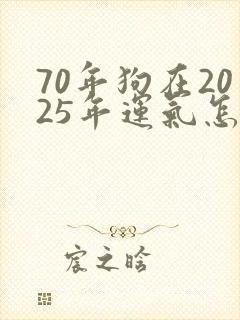 70年狗在20
25年運氣怎
宸之晗